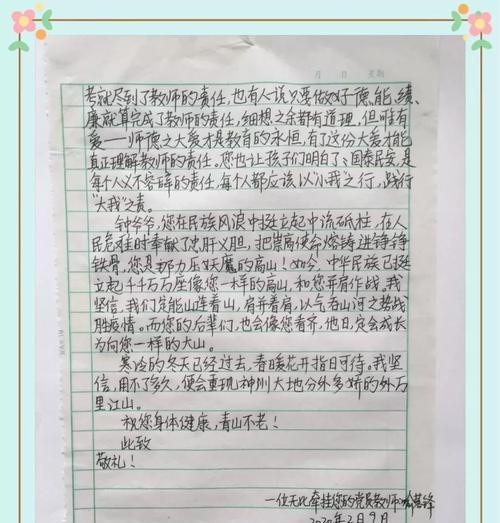 月 日 星期
考就尽到了教师的责任,也有人说只要做好德、能、绩、
廉就算完成了教师的责任,细想之余都有道理,但唯有
爱——师德之大爱才是教育的永恒,有了份大爱才能
真正理解教师的责任。您也让孩子们明白了:国泰民安,是
每个人义不容辞的责任,每个人都应该以“小我”之行,践行
“大我”之责。
钟爷爷,您在民族风浪中挺立起中流砥柱,在人
民危难时奉献了忠肝义胆,把崇高使命熔铸进铮铮
铁骨,您是那力压妖魔的高山!如今,中华民族已挺
立起千千万万座像您一样的高山,和您并肩作战,我
坚信,我们定能山连着山,肩并着肩,以气吞山河之势战
胜疫情。而您的后辈们,也会像您看齐,他日定会成长
为向您一样的大山。
寒冷的冬天已经过去,春暖花开指日可待。我坚
信,用不了多久,便会重现神州大地分外多娇的外万
里江山。
祝您身体健康,青山不老!
此致
敬礼!
一位无比牵挂您的党员教师:
2020年2月9日